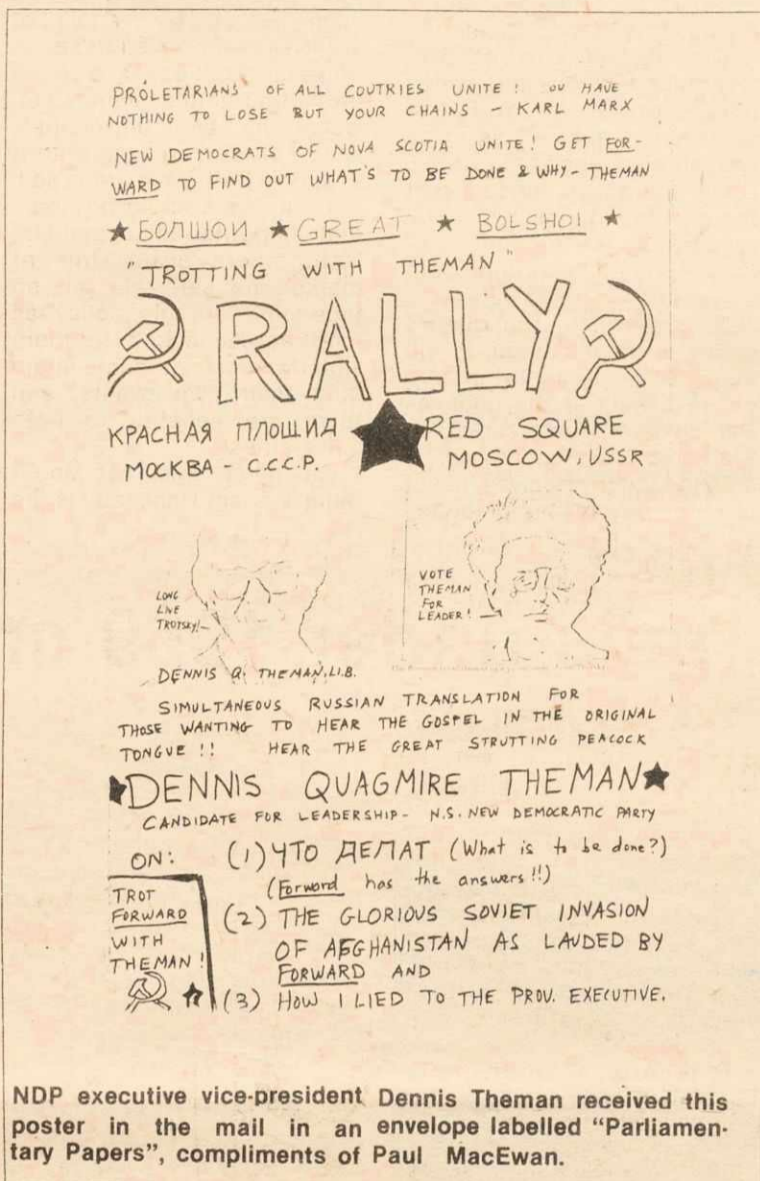 PROLETARIANS OF ALL COUTRIES UNITE! OU HAVE
NOTHING TO LOSE BUT YOUR CHAINS - KARL MARX
NEW DEMOCRATS OF NOVA SCOTIA UNITE! GET FOR-
WARD TO FIND OUT WHAT'S TO BE DONE & WHY - THEMAN
★ БОЛШОИ ★ GREAT ★ BOLSHOI ★
"TROTTING WITH THEMAN"
RALLY
КРАСНАЯ ПЛОЩИД ★ RED SQUARE
МОСКВА - С.С.С.Р. MOSCOW, USSR
LONG
LIVE
TROTSKY!
VOTE
THEMAN
FOR
LEADER!
DENNIS Q. THEMAN, LL.B.
SIMULTANEOUS RUSSIAN TRANSLATION FOR
THOSE WANTING TO HEAR THE GOSPEL IN THE ORIGINAL
TONGUE!! HEAR THE GREAT STRUTTING PEACOCK
★DENNIS QUAGMIRE THEMAN★
CANDIDATE FOR LEADERSHIP - N.S. NEW DEMOCRATIC PARTY
ON: (1) ЧТО ДЕЛАТ (What is to be done?)
(Forword has the answers!!)
(2) THE GLORIOUS SOVIET INVASION
OF AFGHANISTAN AS LAUDED BY
FORWARD AND
(3) HOW I LIED TO THE PROV. EXECUTIVE.
TROT
FORWARD
WITH
THEMAN!
NDP executive vice-president Dennis Theman received this
poster in the mail in an envelope labelled "Parliamen-
tary Papers", compliments of Paul MacEwan.